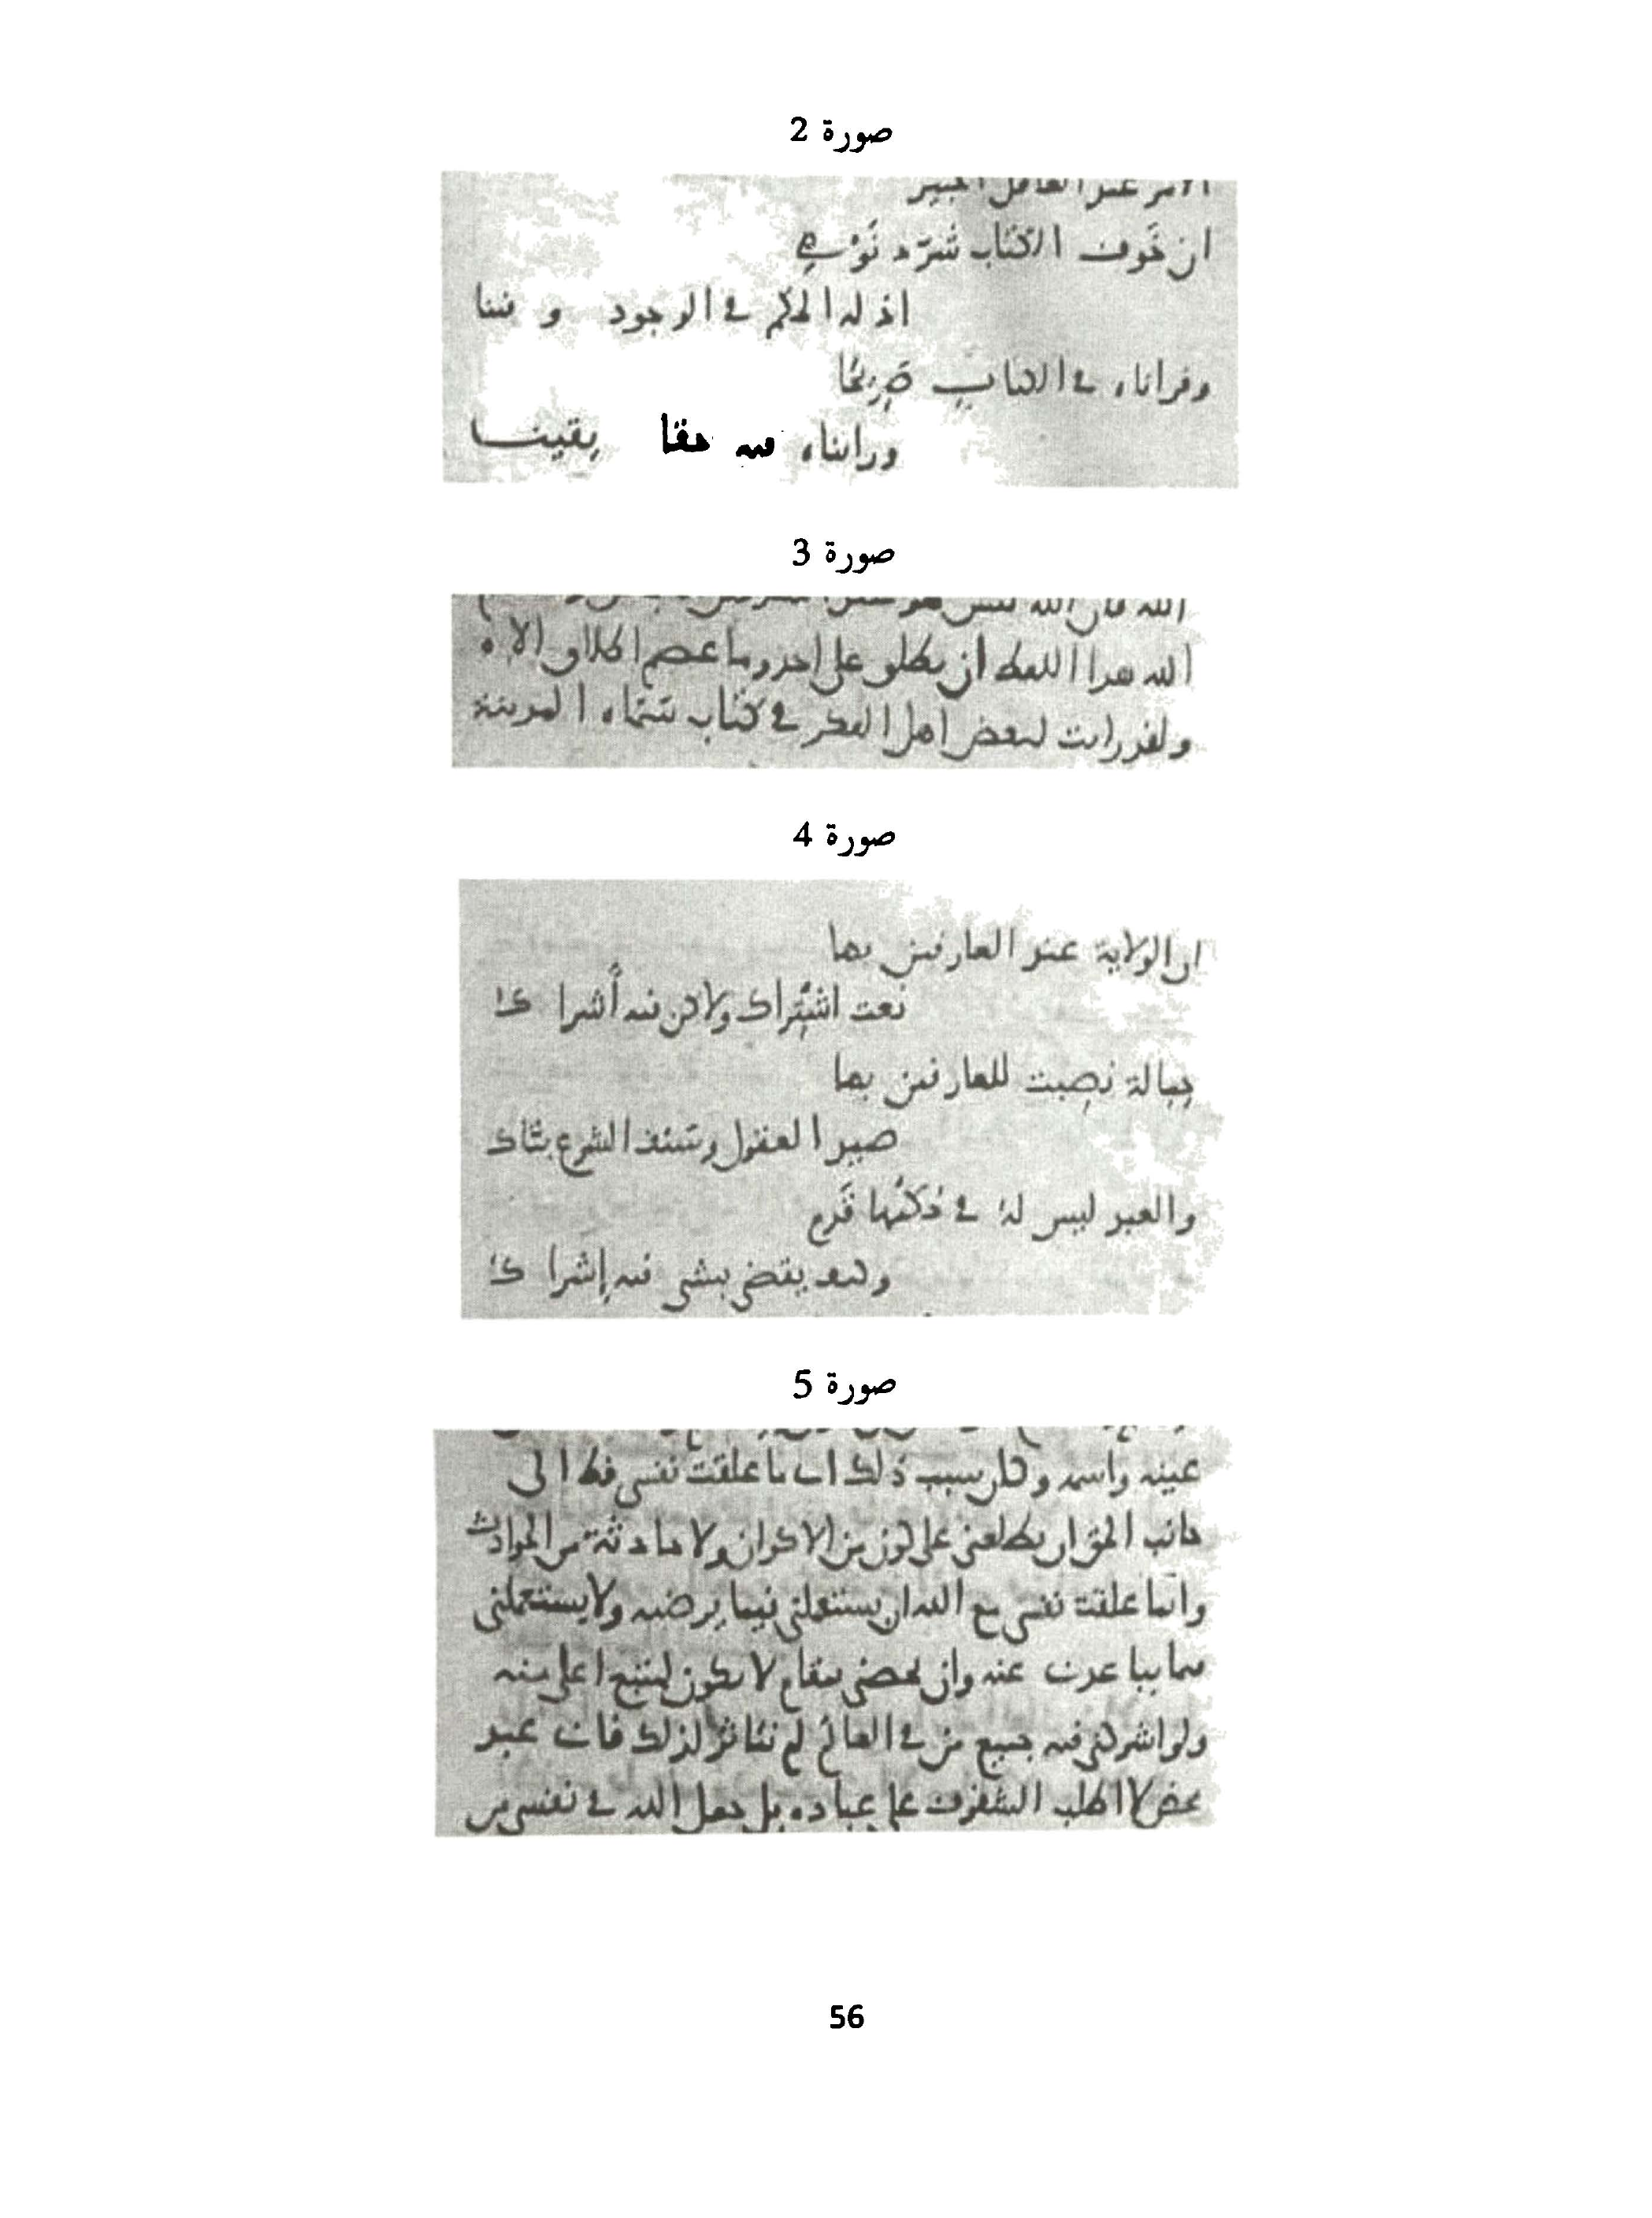 صورة 2
الامر عند العاقل الخبير
ان خَوف الكتاب شَرّد نَوْمي
اذ له الحكم في الوجود و فينا
وقراناه في الكتاب صَرِيحًا
وراينا فيه حقا يقينا
صورة 3
الله فان الله
الله هذا اللفظ ان يطلق على احد وما عصم اطلاق الاله
ولقد رايت لبعض اهل الفكر في كتاب سَمّاه المدينة
صورة 4
ان الولاية عند العارفين بها
نعت اشتِراك ولاكن فيه أشراكُ
حِبالة نُصِبت للعارفين بها
صيد العقول وسَيف الشرع بتّاك
والعبد ليس لهُ في حُكمُها قَدم
وكيف يقضي بشي فيه إشراكُ
صورة 5
عينه واسمه وكان سبب ذلك اني ما علقت نفسي قط الى
جانب الحق ان يطلعني على كون من الاكوان ولا حادثة من الحوادث
وانما علقت نفسي مع الله ان يستعملني فيما يرضيه ولا يستعملني
فيما يباعدني عنه وان يخصني بمقام لا يكون لمتبع اعلى منه
ولو اشركني فيه جميع من في العالم لم نتاثر لذلك فاني عبد
محض لا اطلب الشفوف على عباده بل جعل الله في نفسي من
56